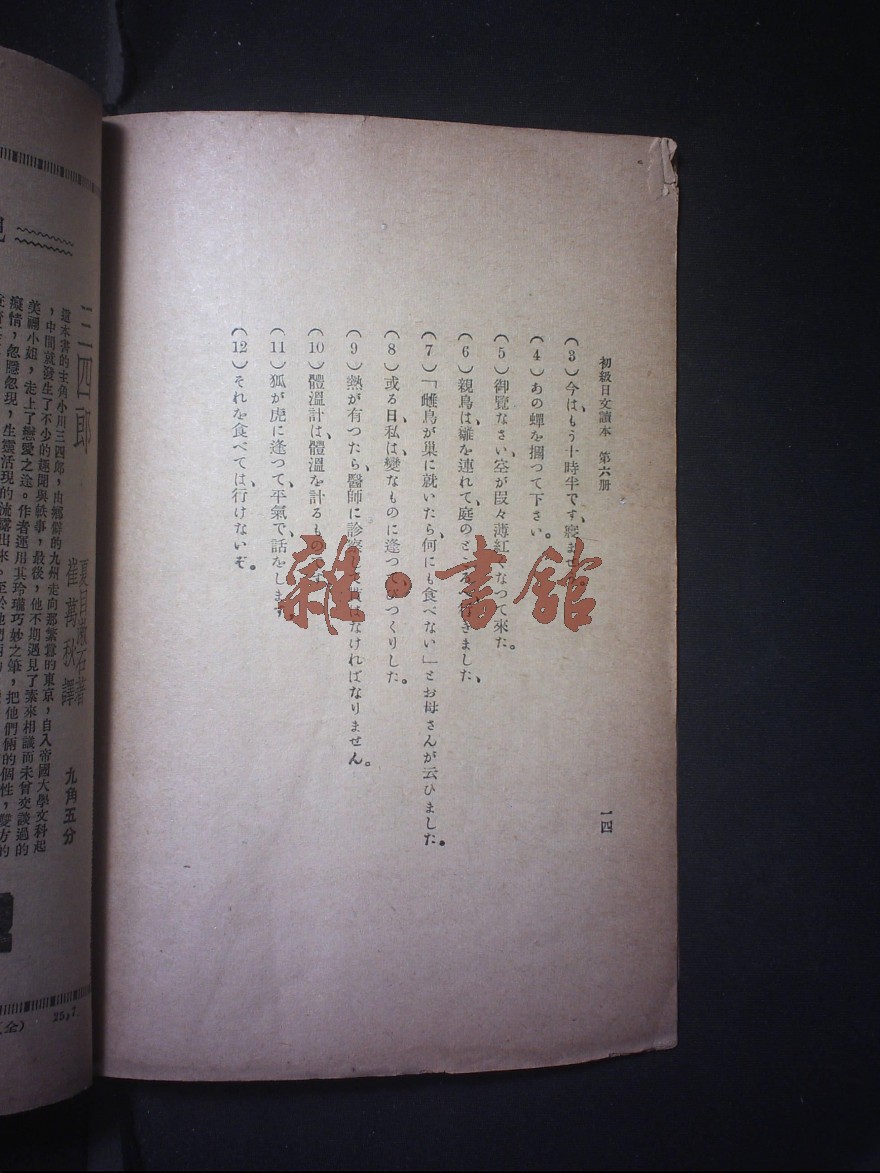 初級日文讀本　第六册
一四
(3)今は、もう十時半です、寢ま
(4)あの蟬を摑つて下さい。
(5)御覽なさい、空が段々薄紅くなつて來た。
(6)親鳥は、雛を連れて、庭の へ行きました、
(7)「雌鳥が巢に就いたら、何にも食べない」とお母さんが云ひました。
(8)或る日、私は、變なものに逢つて、びつくりした。
(9)熱が有つたら、醫師に診察して貰はなければなりません。
(10)體溫計は、體溫を計るものです
(11)狐が虎に逢つて、平氣で、話をします。
(12)それを食べては、行けないぞ。
雜·書館
三四郎
夏目漱石著
崔萬秋譯
九角五分
這本書的主角小川三四郎，由鄉僻的九州走向那繁囂的東京，自入帝國大學文科起
，中間就發生了不少的趣聞與軼事，最後，他不期遇見了素來相識而未曾交談過的
美禰小姐，走上了戀愛之途。作者運用其玲瓏巧妙之筆，把他們倆的個性，雙方的
癡情，忽隱忽現，生靈活現的流露出來，至於他
全)
25,7.